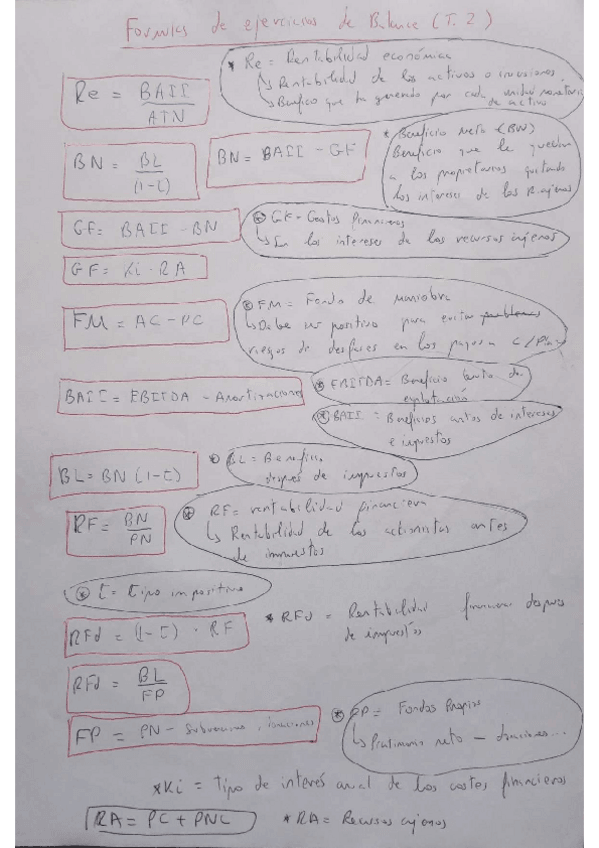 Formulas de ejercicios de Balance (T. 2)
Re = BAII / ATN
* Re = Rentabilidad económica
↳ Rentabilidad de los activos o inversiones
↳ Beneficio que ha generado por cada unidad monetaria
de activo
BN = BL / (1-t)
BN = BAII - GF
* Beneficio Neto (BN)
Beneficio que le queda
a los propietarios quitando
los intereses de los R. ajenos
GF = BAII - BN
* GF = Gastos financieros
↳ Son los intereses de los recursos ajenos
GF = Ki · RA
FM = AC - PC
* FM = Fondo de maniobra
↳ Debe ser positivo para evitar
riesgos de desfases en los pagos a c/plazo
BAII = EBITDA - Amortizaciones
* EBITDA = Beneficio bruto de
explotación
* BAII = Beneficios antes de intereses
e impuestos
BL = BN (1-t)
* BL = Beneficio
después de impuestos
RF = BN / PN
* RF = rentabilidad financiera
↳ Rentabilidad de los accionistas antes
de impuestos
* t = tipo impositivo
RFd = (1-t) · RF
* RFd = Rentabilidad financiera despues
de impuestos
RFd = BL / FP
FP = PN - Subvenciones, donaciones
* FP = Fondos Propios
↳ Patrimonio neto - donaciones...
*Ki = Tipo de interés anual de los costes financieros
RA = PC + PNC
*RA = Recursos ajenos